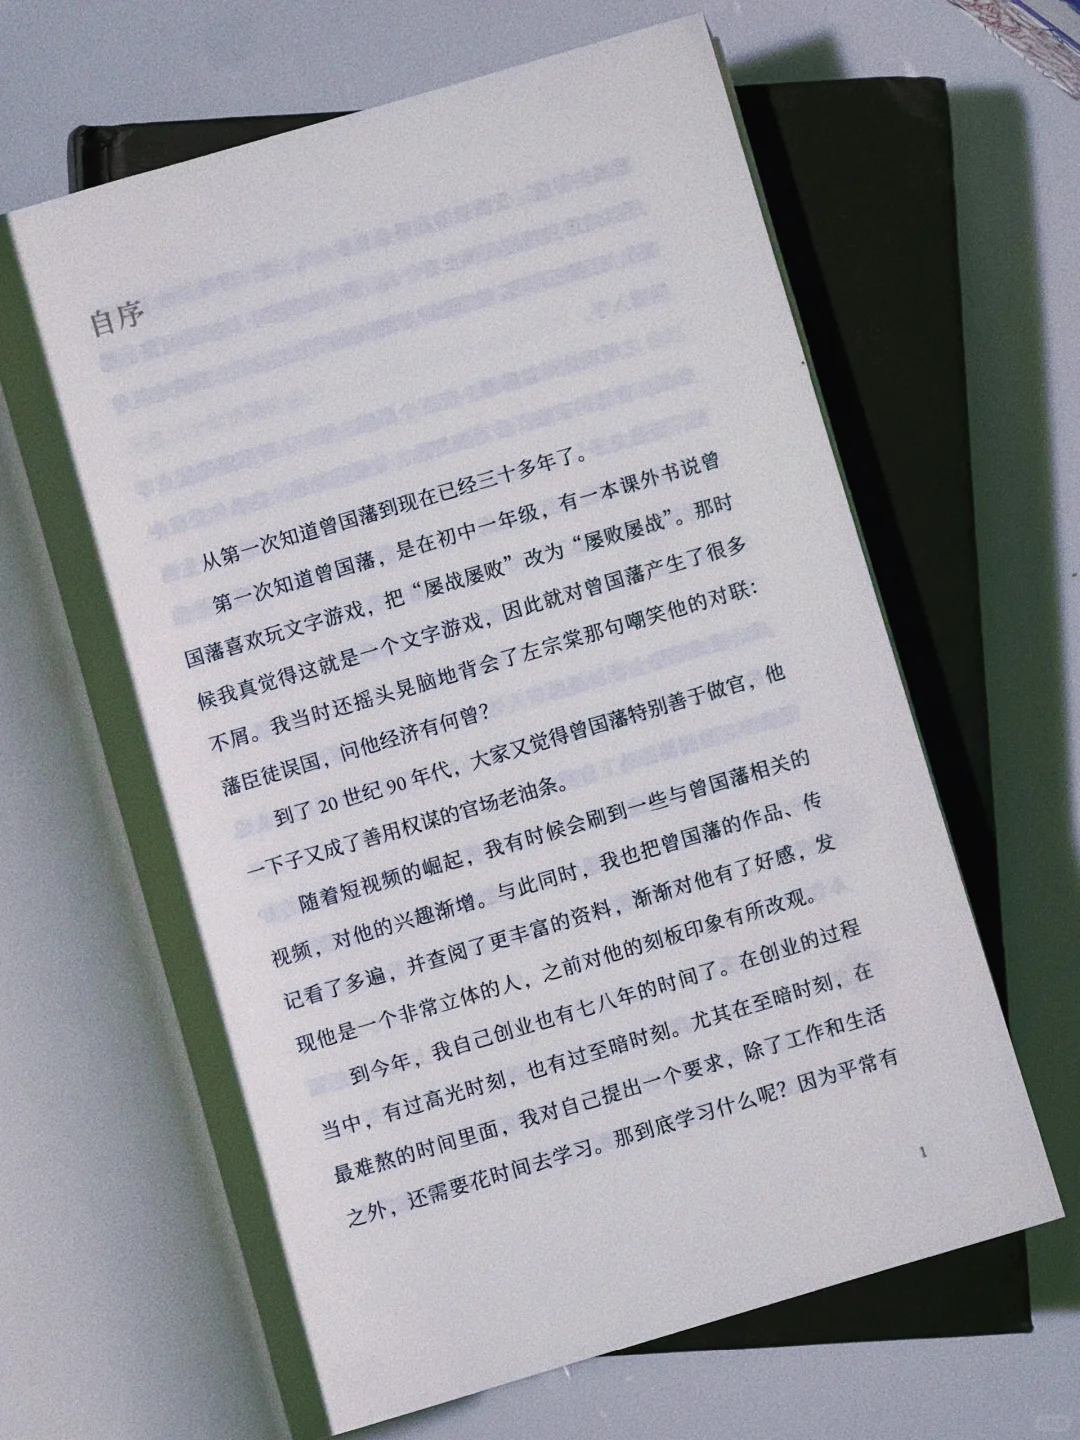 自序
从第一次知道曾国藩到现在已经三十多年了。
第一次知道曾国藩，是在初中一年级，有一本课外书说曾
国藩喜欢玩文字游戏，把“屡战屡败”改为“屡败屡战”。那时
候我真觉得这就是一个文字游戏，因此就对曾国藩产生了很多
不屑。我当时还摇头晃脑地背会了左宗棠那句嘲笑他的对联：
藩臣徒误国，问他经济有何曾？
到了20世纪90年代，大家又觉得曾国藩特别善于做官，他
一下子又成了善用权谋的官场老油条。
随着短视频的崛起，我有时候会刷到一些与曾国藩相关的
视频，对他的兴趣渐增。与此同时，我也把曾国藩的作品、传
记看了多遍，并查阅了更丰富的资料，渐渐对他有了好感，发
现他是一个非常立体的人，之前对他的刻板印象有所改观。
到今年，我自己创业也有七八年的时间了。在创业的过程
当中，有过高光时刻，也有过至暗时刻。尤其在至暗时刻，在
最难熬的时间里面，我对自己提出一个要求，除了工作和生活
之外，还需要花时间去学习。那到底学习什么呢？因为平常有
1